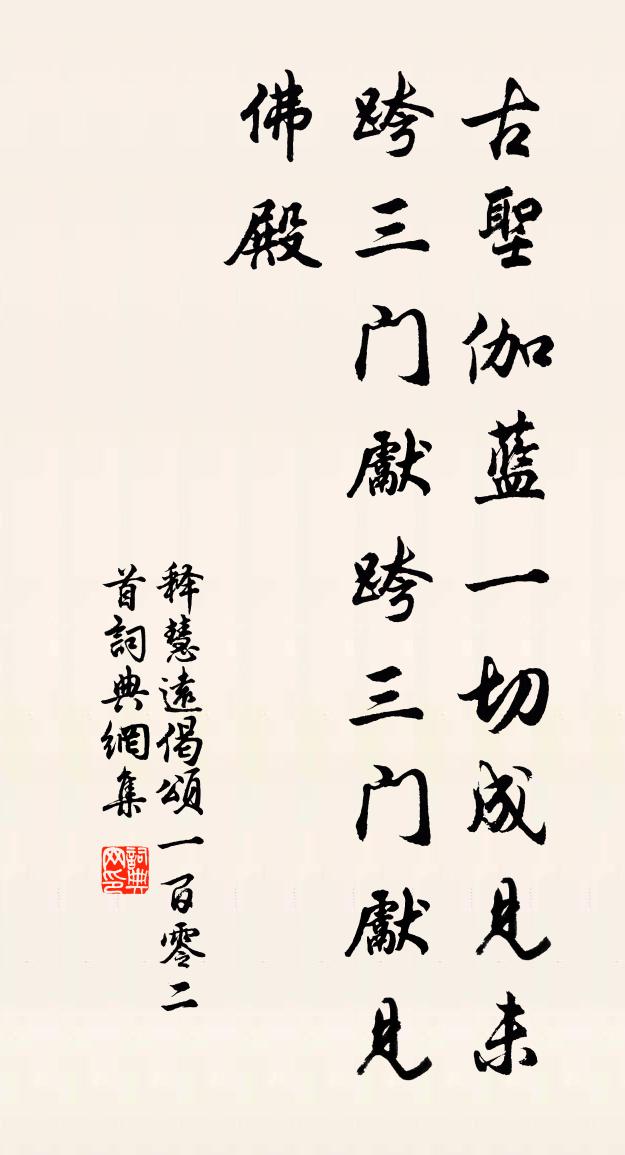 古聖伽藍一切成見未
跨三门獻跨三门獻見
佛殿
释慧遠偈頌一百零二
首詞典網集
詞典网印